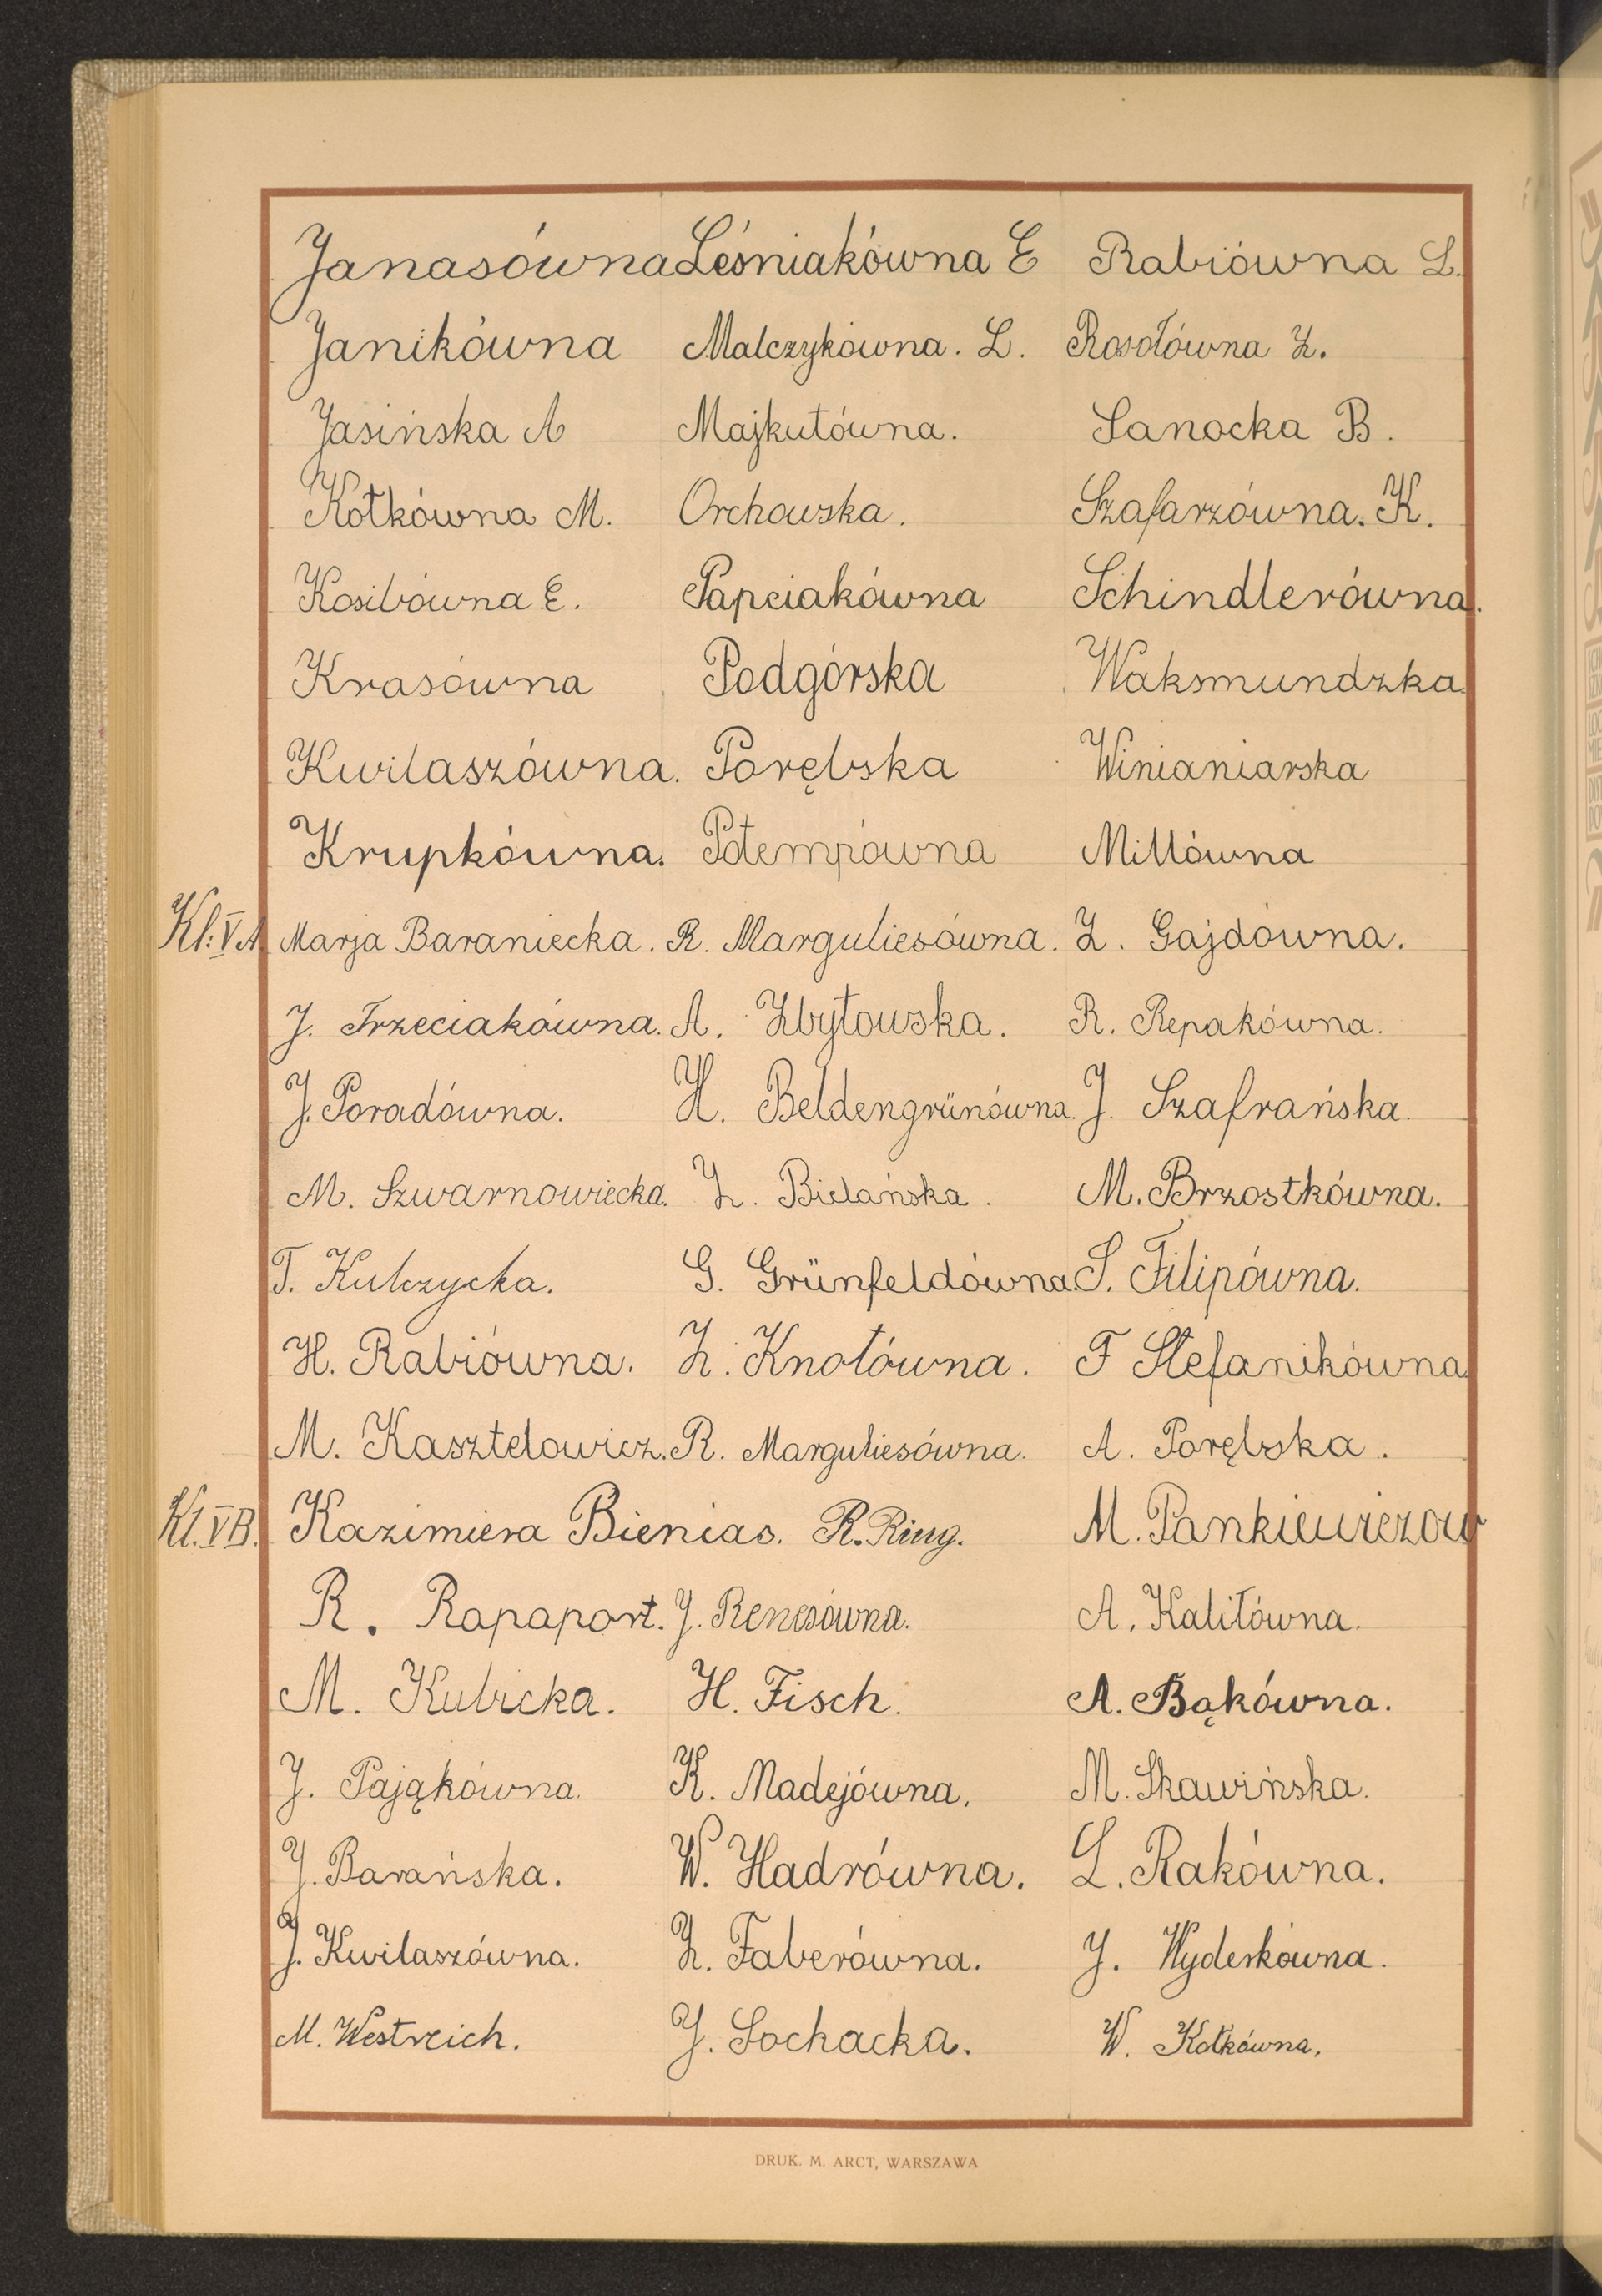 Janasówna Leśniakówna E Rabiówna L.
Janikówna Malczykówna. L. Rosołówna Z.
Jasińska A Majkutówna. Sanocka B.
Kotkówna M. Orchowska. Szafarzówna. K.
Kosibówna E. Papciakówna Schindlerówna.
Krasówna Podgórska Waksmundzka
Kwilaszówna. Porębska Winianiarska
Krupkówna. Potempówna Millówna
Kl: V A. Marja Baraniecka. R. Marguliesówna. Z. Gajdówna.
J. Trzeciakówna. A. Zbytowska. R. Repakówna.
J. Poradówna. H. Beldengrünówna. J. Szafrańska.
M. Szwarnowiecka. Z. Bielańska. M. Brzostkówna.
T. Kulczycka. G. Grünfeldówna. S. Filipówna.
H. Rabiówna. Z. Knotówna. F Stefanikówna
M. Kasztelowicz. R. Marguliesówna. A. Porębska.
Kl. V B. Kazimiera Bienias. R. Ring. M. Pankiewiczow
R. Rapaport. J. Renesówna. A. Kalitówna.
M. Kubicka. H. Fisch. A. Bąkówna.
J. Pająkówna. K. Madejówna. M. Skawińska.
J. Barańska. W. Hadrówna. L. Rakówna.
J. Kwilaszówna. Z. Faberówna. J. Wyderkówna.
M. Westreich. J. Sochacka. W. Kotkówna.
DRUK. M. ARCT, WARSZAWA